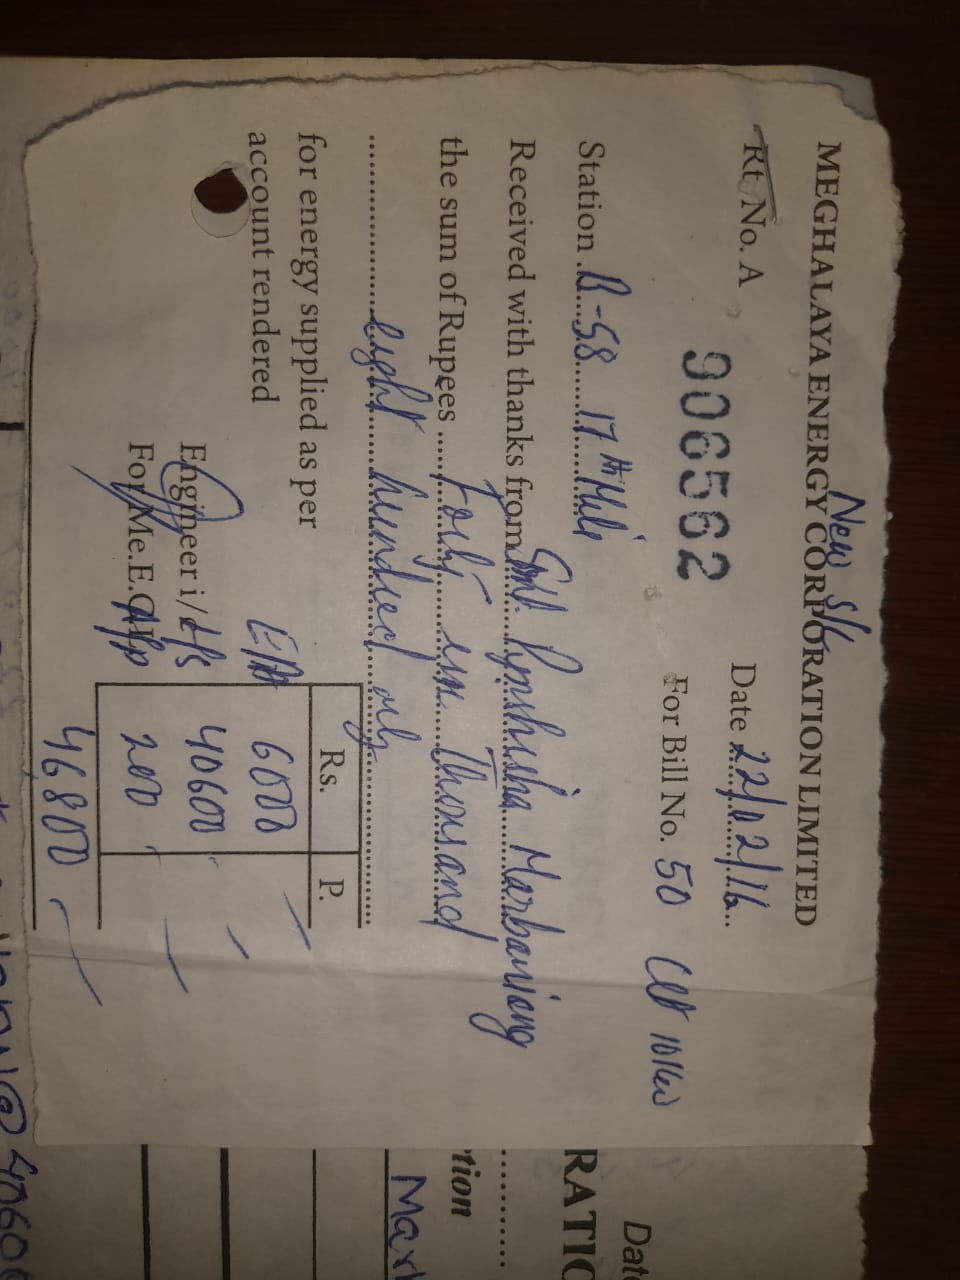 New S/C
MEGHALAYA ENERGY CORPORATION LIMITED
Rt. No. A Date 22/02/16
906562 For Bill No. 50
Station B-58 17th Mile
Received with thanks from Smt. Rymshisha Marbaniang
the sum of Rupees Forty six Thousand
eight hundred only
for energy supplied as per
account rendered
Rs. P.
6000
40600
Engineer i/c
200
For Me.E.C.L.
46800
RATIO
Date
tion
Mar